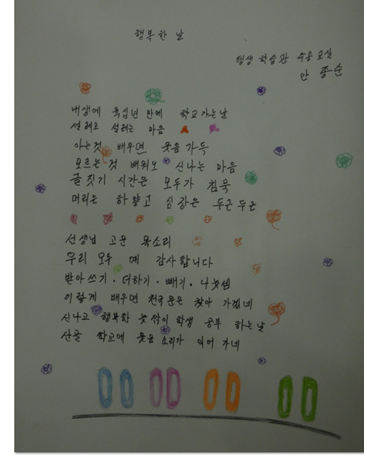 행복한 날
평생 학습관 수웅교실
안종순
내생에 육십년 만에 학교가는날
설레고 설레는 마음
아는것 배우면 웃음가득
모르는것 배워도 신나는 마음
글짓기 시간은 모두가 침묵
머리는 하얗고 심장은 두근두근
선생님 고운 목소리
우리 모두 예 감사합니다
받아쓰기·더하기·빼기·나눗셈
이렇게 배우면 천국문은 찾아 가겠네
신나고 행복한 늦깎이 학생 공부 하는날
산골 학교에 웃음소리가 익어가네